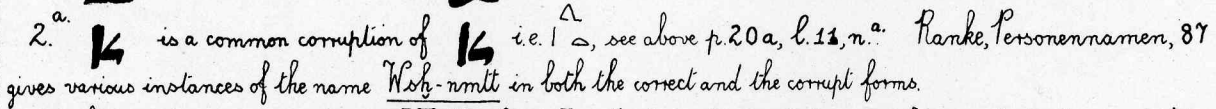 2.ᵃ· is a common corruption of i.e. , see above p.20a, l.11, n.ᵃ· Ranke, Personennamen, 87
gives various instances of the name Wsḫ-nmtt in both the correct and the corrupt forms.